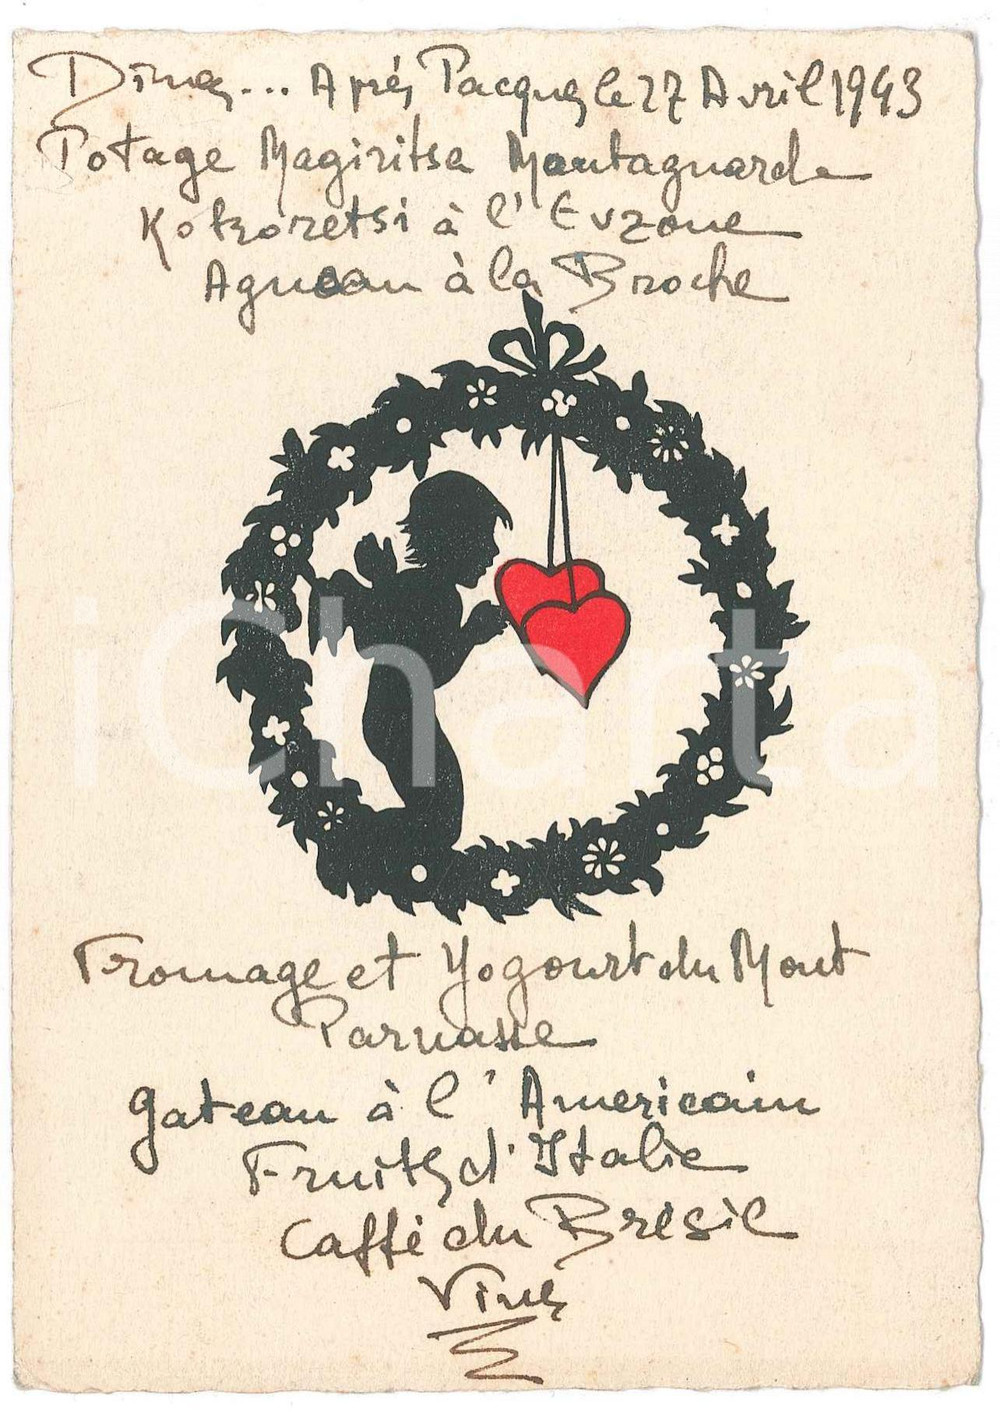 Diner... Aprés Pacques le 27 Avril 1943
Potage Magiritsa Montagnarde
Kokoretsi à l'Evzone
Agneau à la Broche
iCharta
Fromage et Yogourt du Mont
Parnasse
Gateau à l'Americain
Fruits d'Italie
Caffé du Bresil
Vins